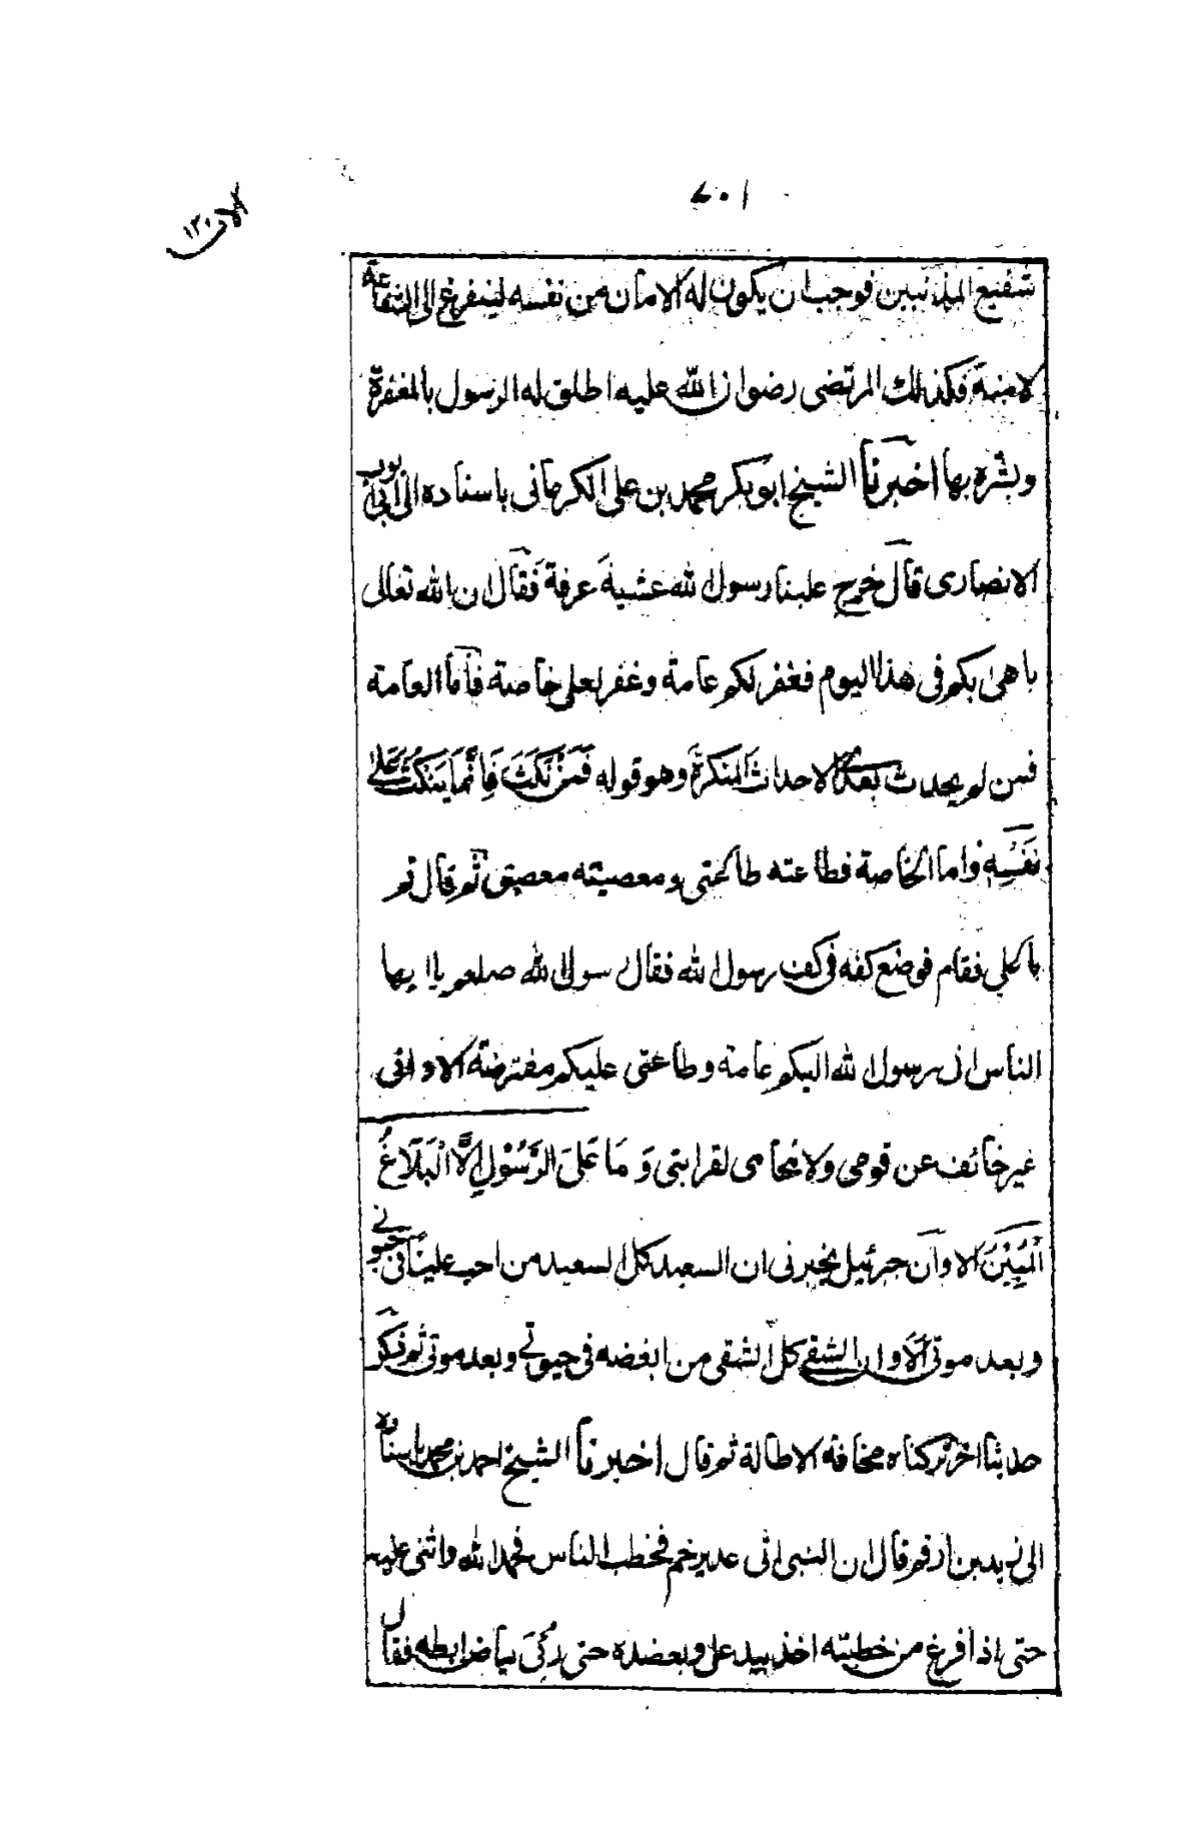 ٧٠١
شفيع المذنبين فوجب ان يكون له الامان من نفسه ليتفرغ الى الشفاعة
لامته فكذلك المرتضى رضوان الله عليه اطلق له الرسول بالمغفرة
وبشره بها اخبرنا الشيخ ابو بكر محمد بن على الكرمانى باسناده الى ابى ايوب
الانصارى قال خرج علينا رسول الله عشية عرفة فقال ان الله تعالى
باهى بكم فى هذا اليوم فغفر لكم عامة وغفر لعلى خاصة فأما العامة
فمن لم يحدث بعدى الاحداث المنكرة وهو قوله فَمَنْ نَكَثَ فَإِنَّمَا يَنْكُثُ عَلَى
نَفْسِهِ واما الخاصة فطاعته طاعتى ومعصيته معصيتى ثم قال قم
يا على فقام فوضع كفه فى كف رسول الله فقال رسول الله صلعم يا ايها
الناس انى رسول الله اليكم عامة وطاعتى عليكم مفترضة الا وانى
غير خائف عن قومى ولا محامى لقرابتى وَمَا عَلَى الرَّسُوْلِ اِلَّا الْبَلَاغُ
الْمُبِيْنُ الا وان جبرئيل يخبرنى ان السعيد كل السعيد من احب عليا فى حيوتى
وبعد موتى الا وان الشقى كل الشقى من ابغضه فى حيوتى وبعد موتى ثم ذكر
حديثا اخر تركناه مخافة الاطالة ثم قال اخبرنا الشيخ احمد بن محمد باسناده
الى زيد بن ارقم قال ان النبى اتى غدير خم فخطب الناس فحمد الله واثنى عليه
حتى اذا فرغ من خطبته اخذ بيد على وبعضده حتى رئى بياض ابطه فقال